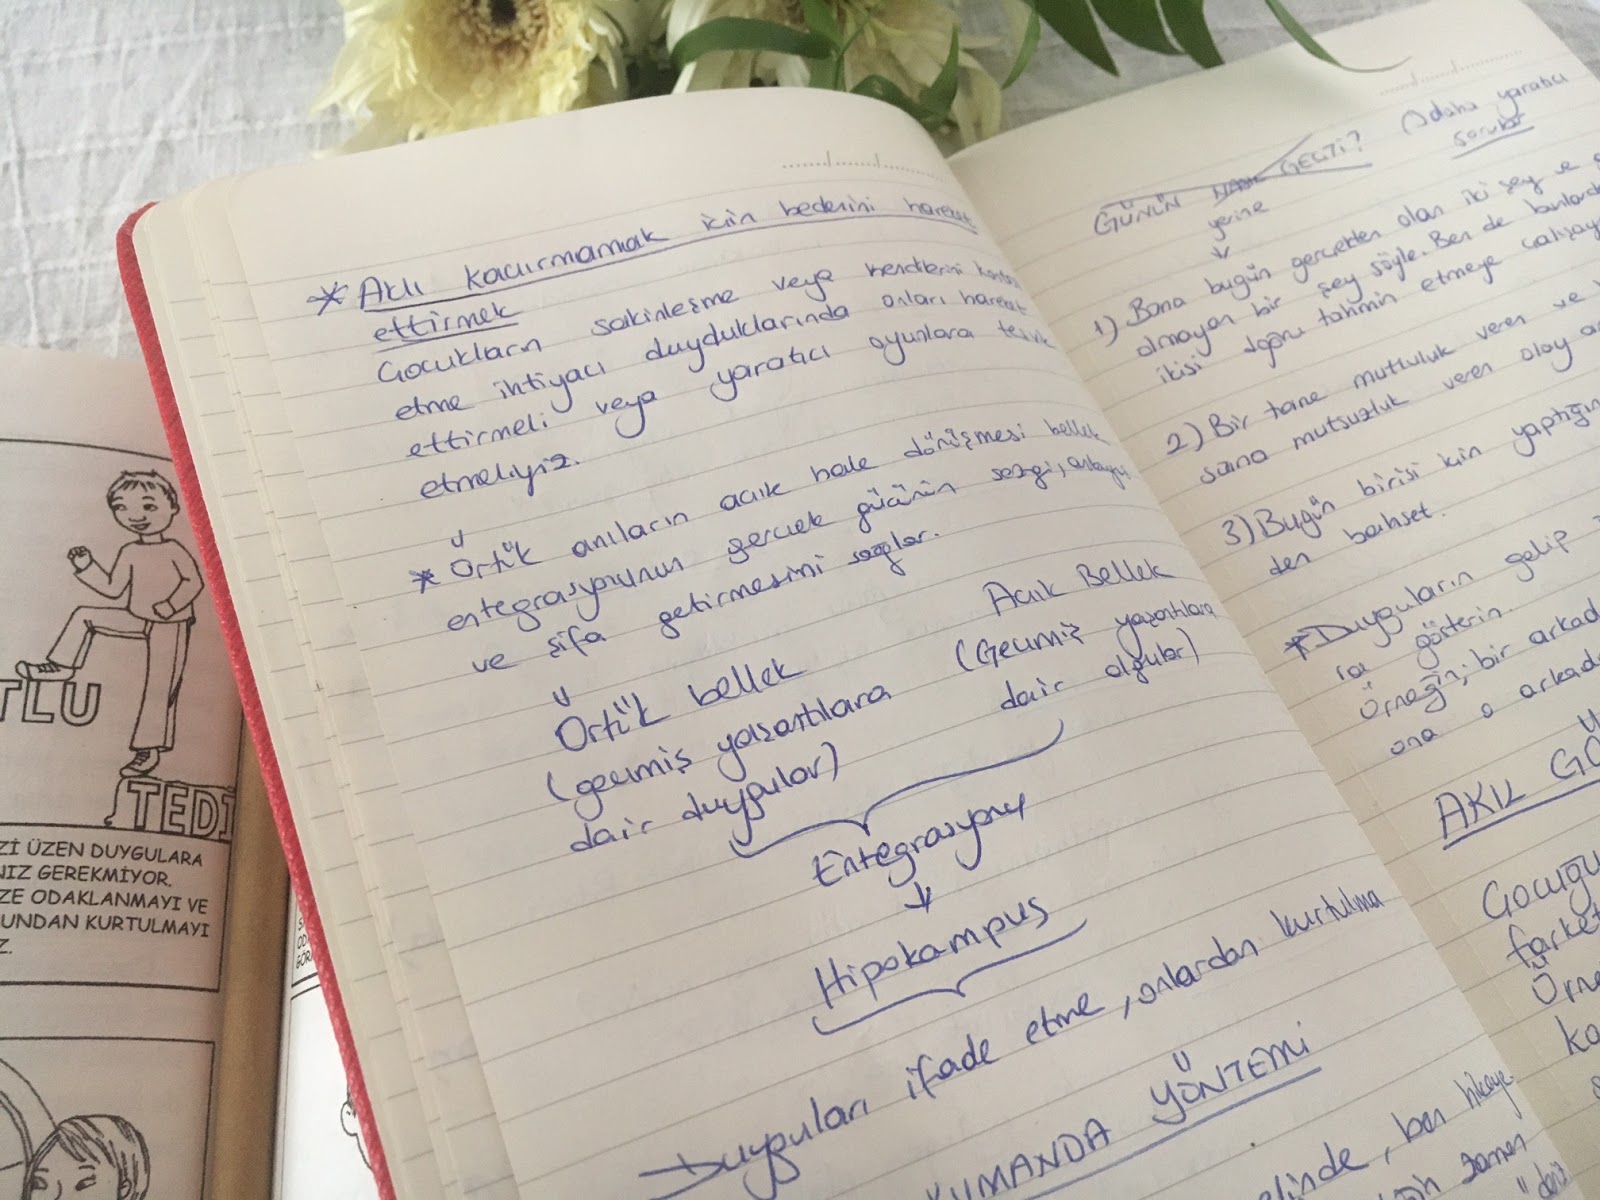 * Aklı kaçırmamak için bedenini hareket
ettirmek
Çocukların sakinleşme veya kendilerini
etme ihtiyacı duyduklarında onları hareket
ettirmeli veya yaratıcı oyunlara
etmeliyiz.
* Örtük anıların açık hale dönüşmesi bellek
entegrasyonunun gerçek gücünün sezgi,
ve şifa getirmesini sağlar.
Örtük bellek
(geçmiş yaşantılara
dair duygular)
Açık Bellek
(Geçmiş yaşantılara
dair olgular)
Entegrasyonu
Hipokampüs
Duyguları ifade etme, onlardan kurtulma
KUMANDA YÖNTEMİ
elinde, ben hikaye
zaman
GÜNÜN NASIL GEÇTİ? daha yaratıcı
sorular
yerine
1) Bana bugün gerçekten olan iki şey ve
olmayan bir şey söyle. Ben de bunlardan
ikisi doğru tahmin etmeye
2) Bir tane mutluluk veren ve
sana mutsuzluk veren olay
3) Bugün birisi için yaptığın
den bahset.
* Duyguların gelip
gösterin.
Örneğin; bir
ona o
AKIL
Çocuğu
farket
TLU
TEDİ
Zİ ÜZEN DUYGULARA
NIZ GEREKMİYOR.
ZE ODAKLANMAYI VE
UNDAN KURTULMAYI
Z.